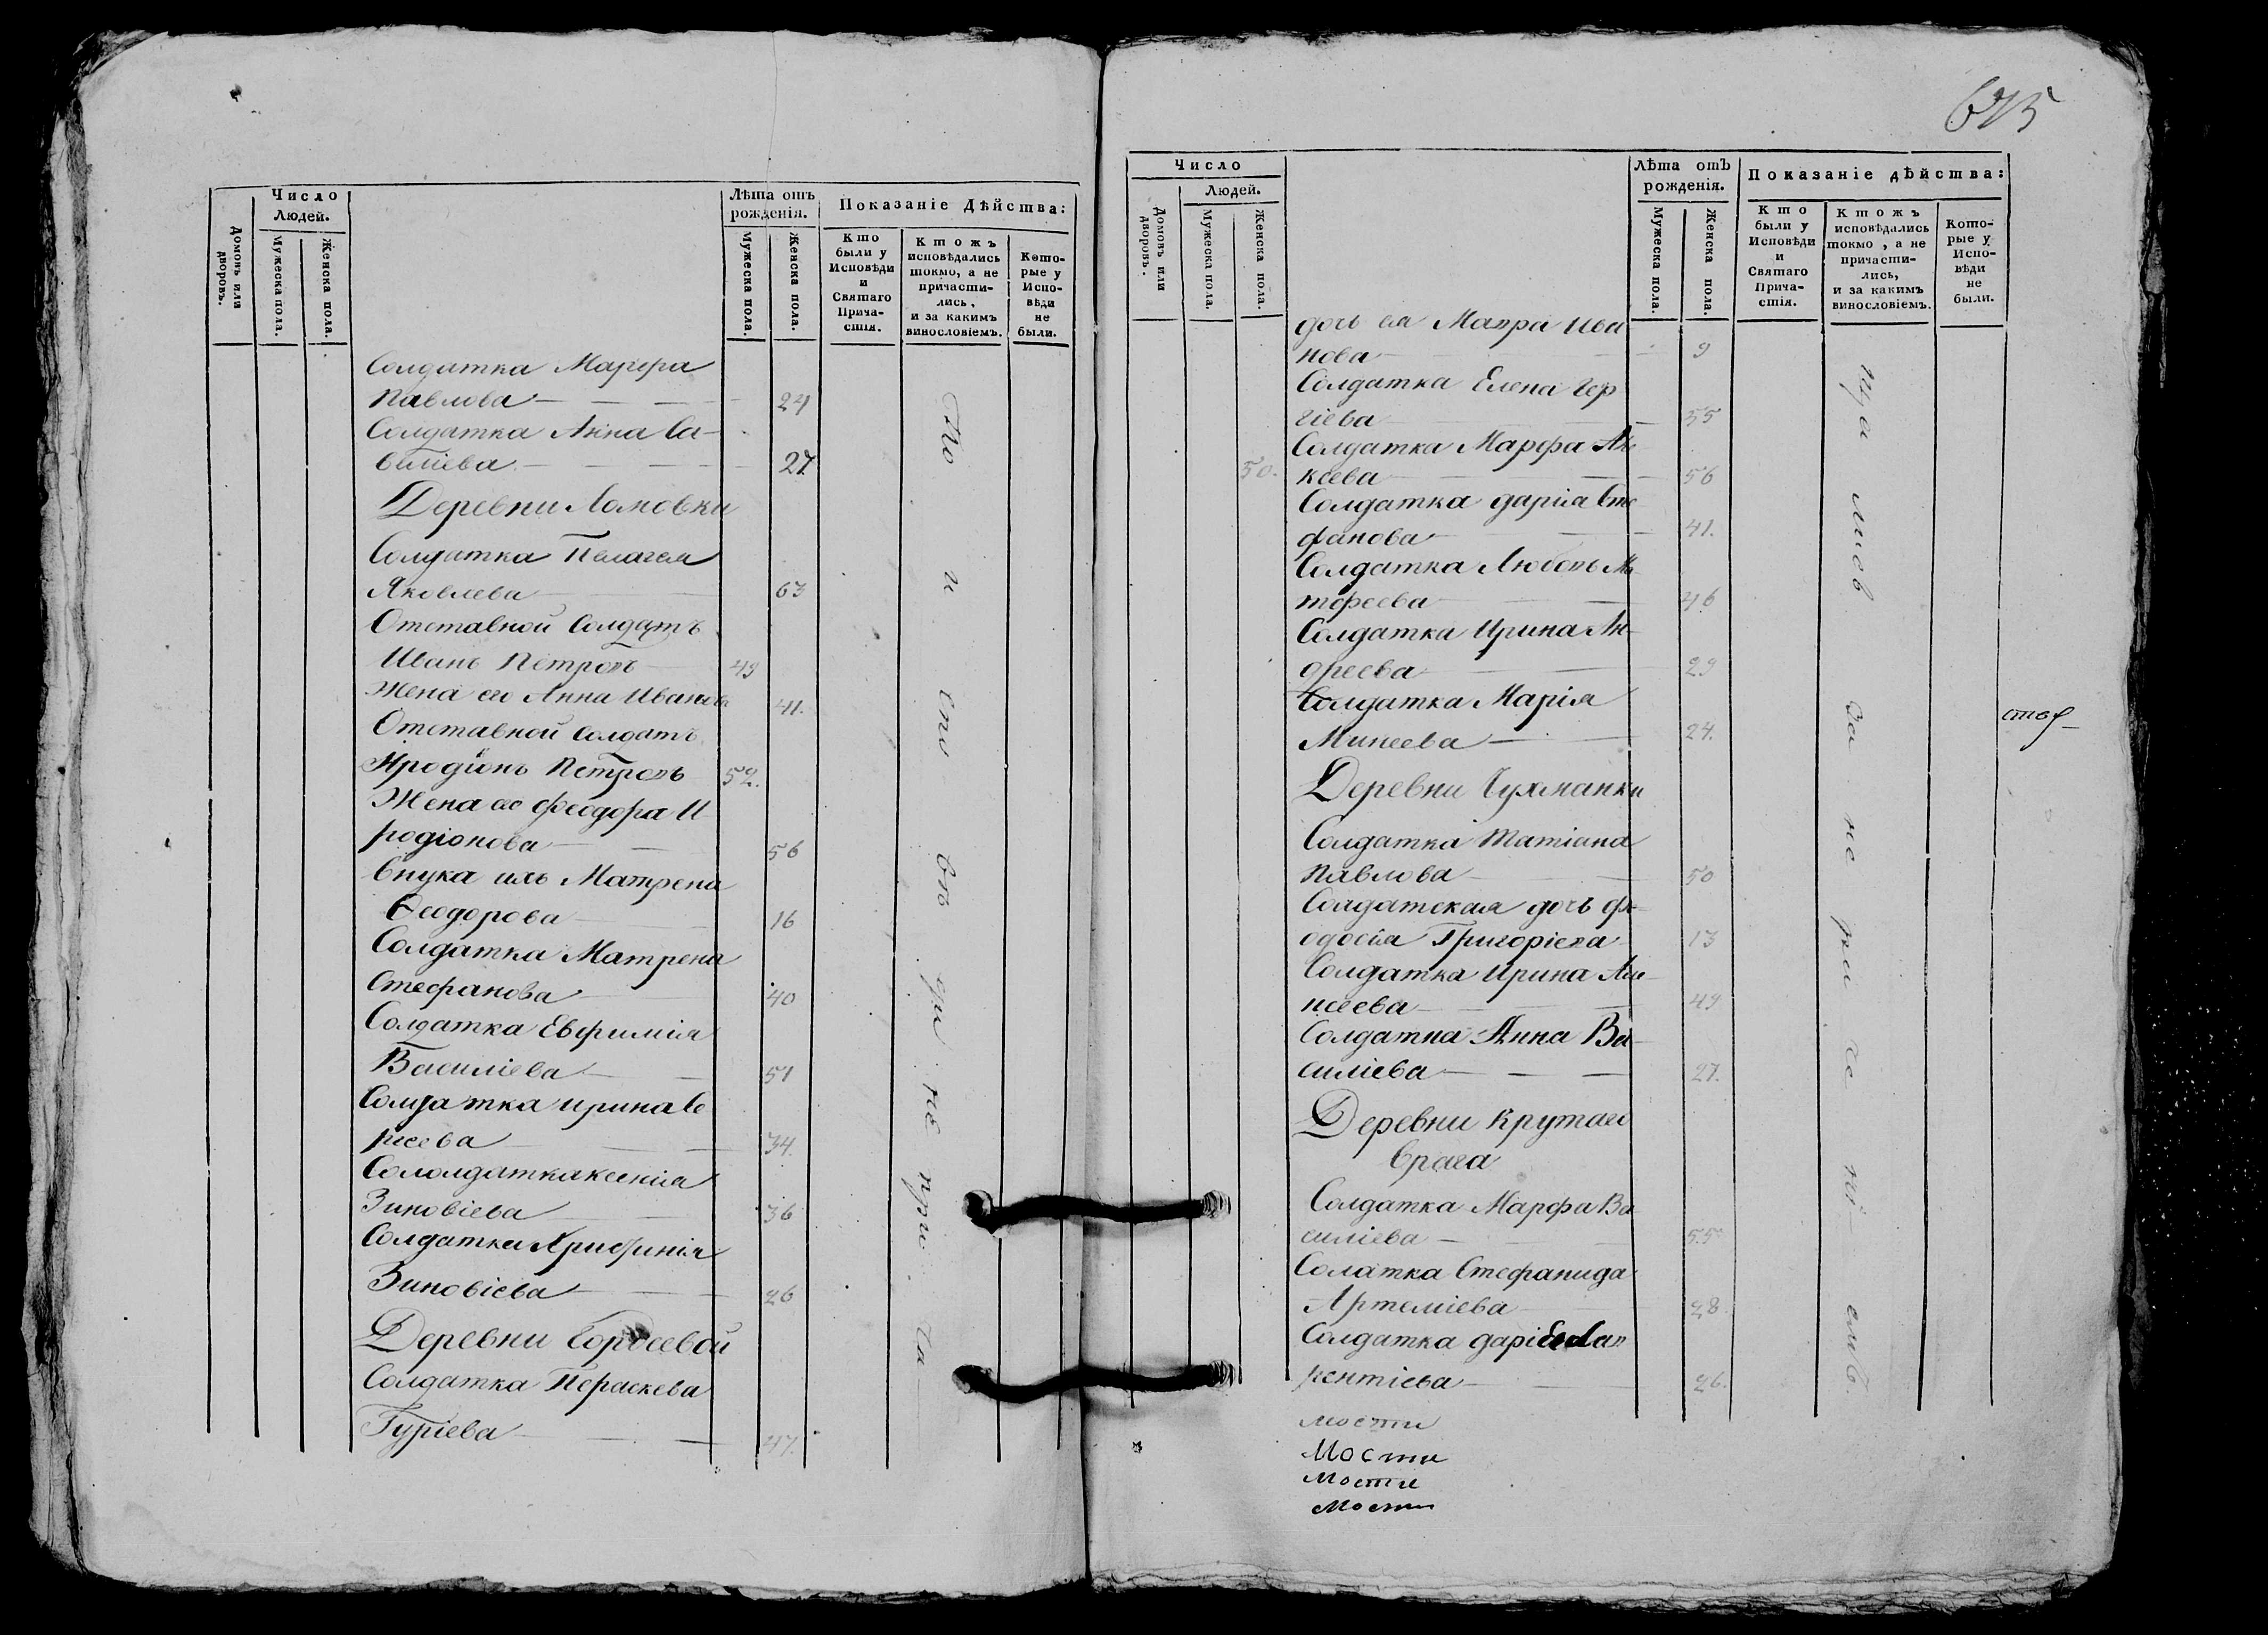 Число
Людей.
Домовъ или дворовъ.
Мужеска пола.
Женска пола.
Лѣта отъ
рожденія.
Мужеска пола.
Женска пола.
Показаніе Дѣйства:
Кто
были у
Исповѣди
и
Святаго
Прича-
стія.
Ктожъ
исповѣдались
токмо, а не
причасти-
лись,
и за какимъ
винословіемъ.
Кото-
рые у
Испо-
вѣди
не
были.
Солдатка Марфа
Павлова 24
Солдатка Анна Са-
виліева 27
Деревни Ломовки
Солдатка Пелагея
Яковлева 63
Отставной Солдатъ
Иванъ Петровъ 49
Жена его Анна Иванова 41.
Отставной солдатъ
Иродіонъ Петровъ 52.
Жена ево Феодора И
родіонова 56
Внука ихъ Матрена
Ѳеодорова 16
Солдатка Матрена
Стефанова 40
Солдатка Евфимія
Василіева 51
Солдатка ирина Се
ргеева 34.
Сололдатка ксенія
Зиновіева 36
Солдатка Хрисфинія
Зиновіева 26
Деревни
Солдатка Параскева
Гуріева 47.
по и спо вѣ да не при ча
675
Число
Людей.
Домовъ или дворовъ.
Мужеска пола.
Женска пола.
Лѣта отъ
рожденія.
Мужеска пола.
Женска пола.
Показаніе дѣйства:
Кто
были у
Исповѣди
и
Святаго
Прича-
стія.
Ктожъ
исповѣдались
токмо, а не
причасти-
лись,
и за какимъ
винословіемъ.
Кото-
рые у
Испо-
вѣди
не
были.
дочь ея Мавра Ива
нова 9
Солдатка Елена Геор
гіева 55
Солдатка Марфа Але
50. ксеева 56
Солдатка дарія Сте
фанова 41.
Солдатка Любовь Ма
тфеева 46
Солдатка Ирина Ан-
дреева 29
Солдатка Марія
Минеева 24.
Деревни Чухманки
Солдатка татіана
Павлова 50
Солдатская дочь фе
одосія Григоріева 13
Солдатка Ирина
49
Солдатка Анна Ва-
силіева 27.
Деревни Крутаго
врага
Солдатка Марфа Ва
силіева 55
Солатка Стефанида
Артеміева 28.
Солдатка дарія Лав
рентіева 26.
за не ра че ні емъ.
мости
Мости
мости
мости